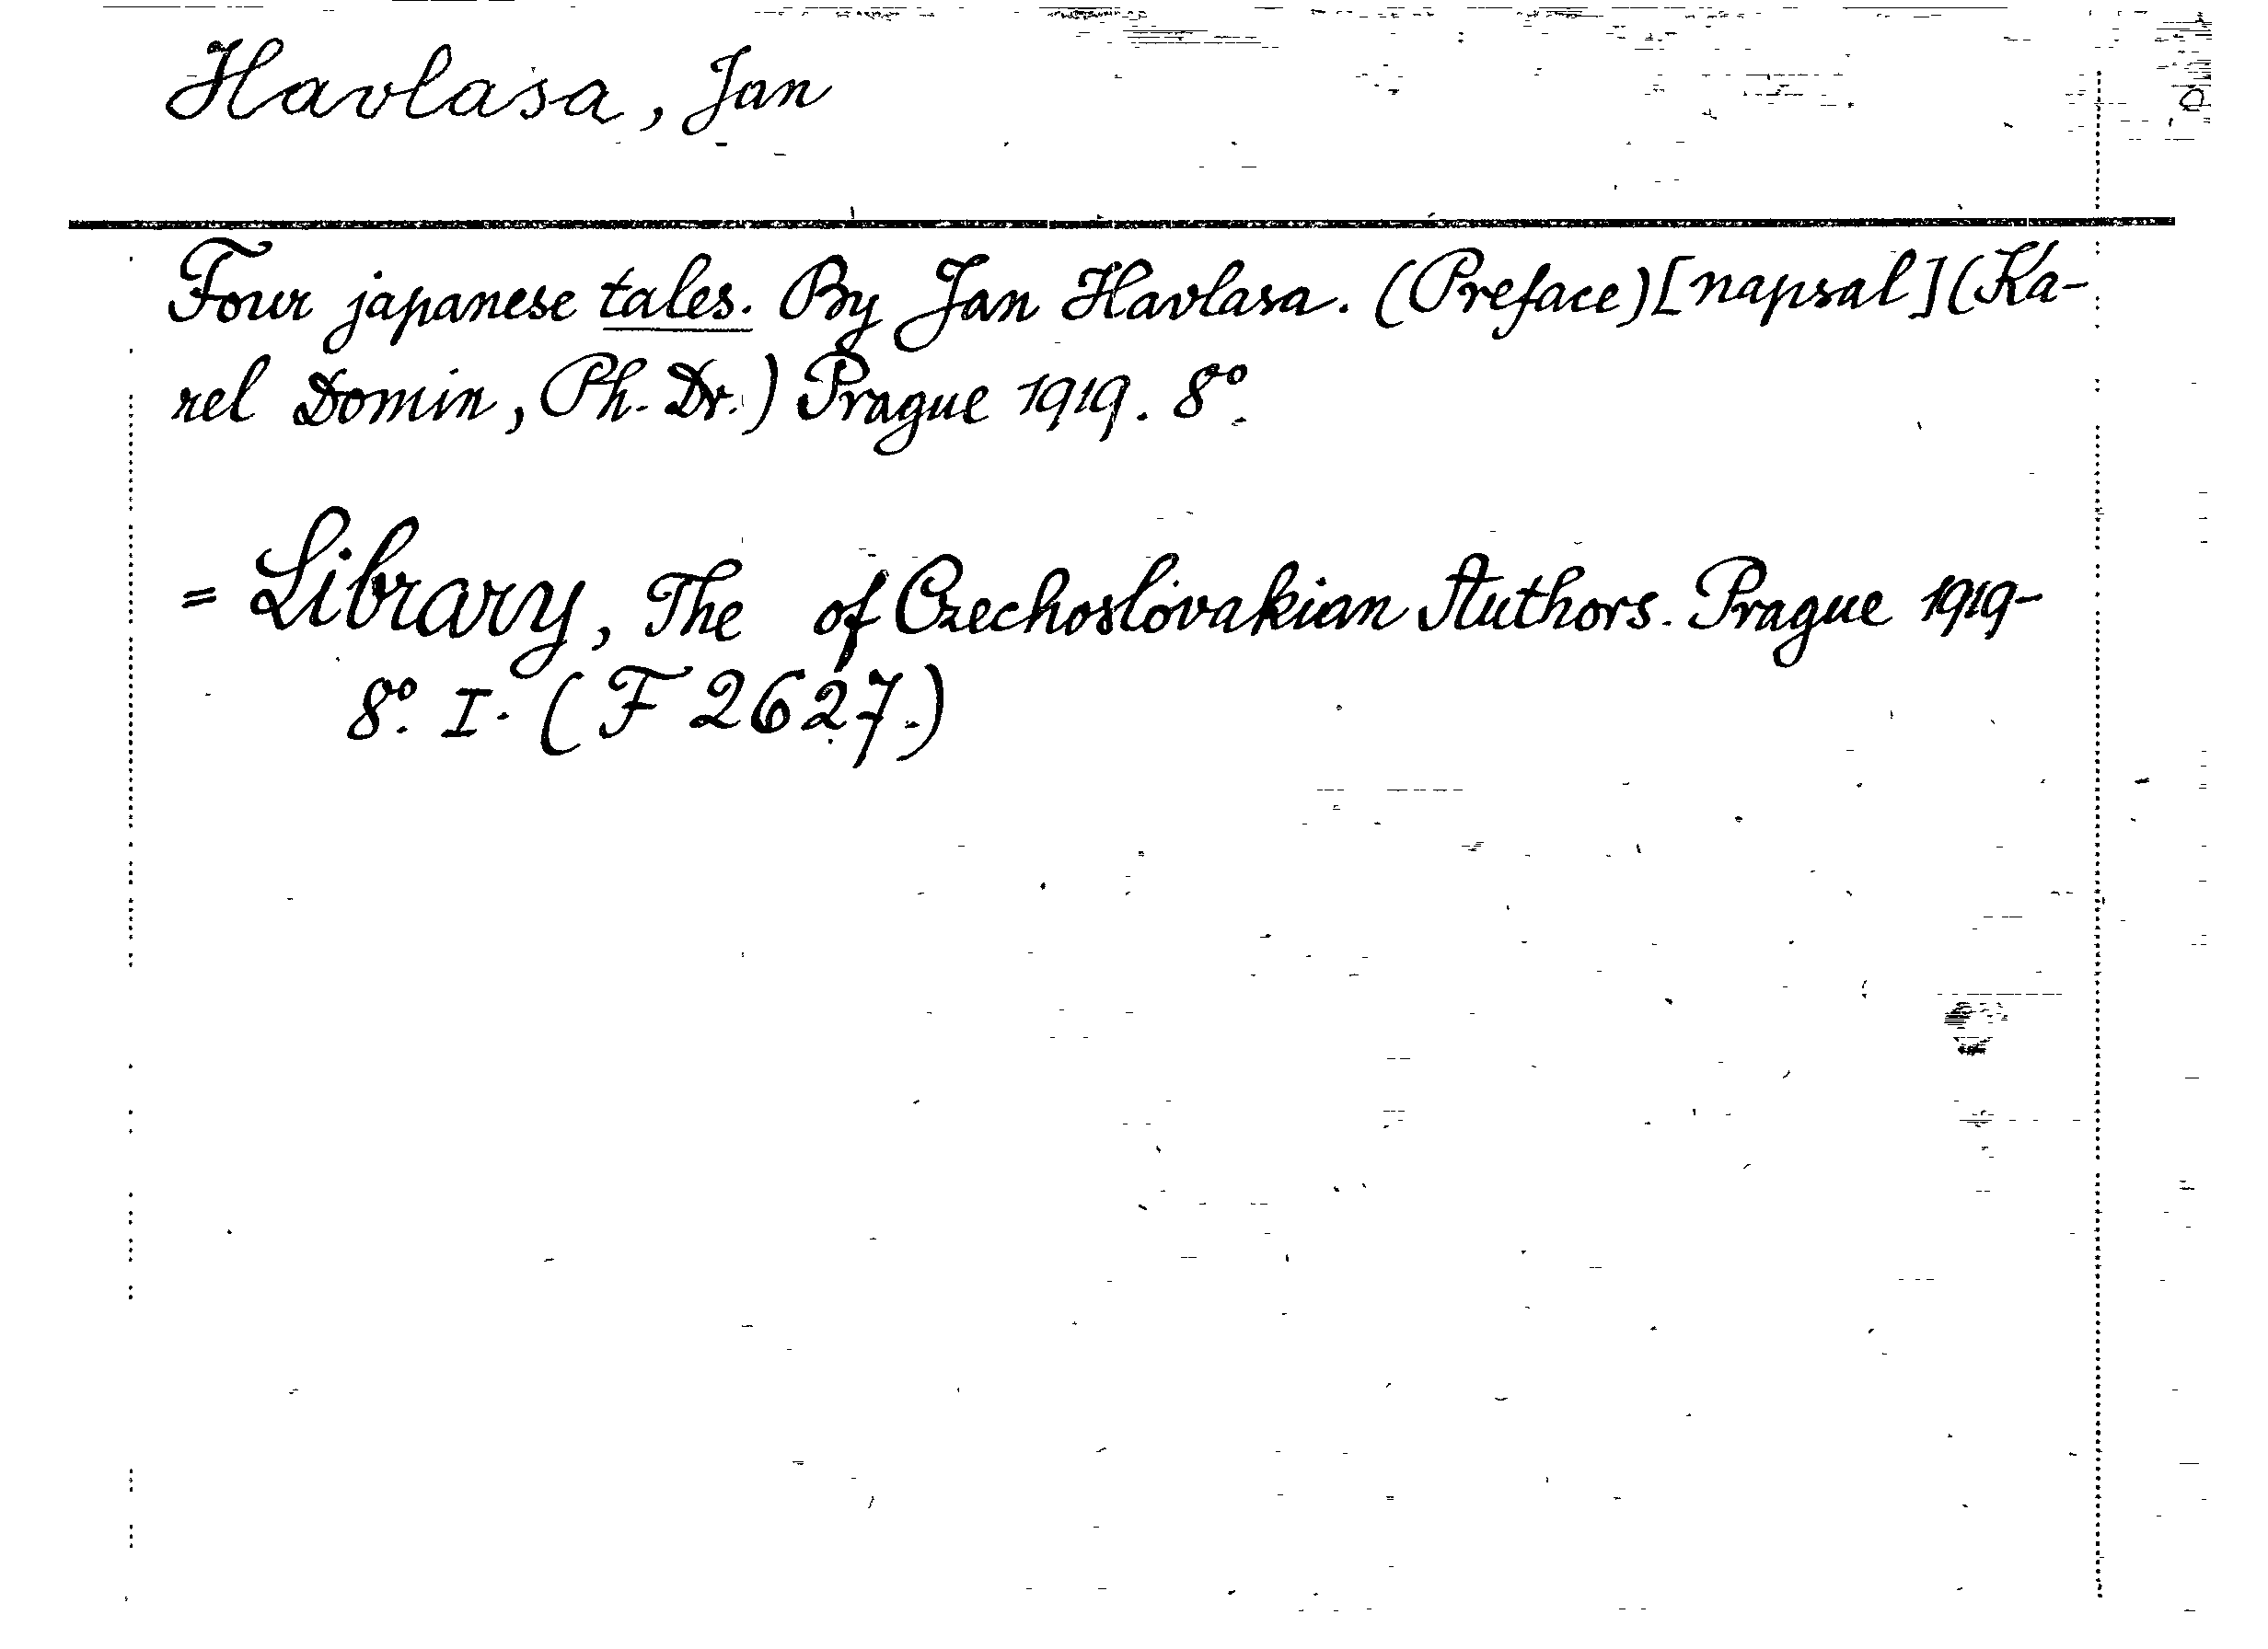 Havlasa, Jan
Four japanese tales. By Jan Havlasa. (Preface) [napsal] (Ka-
rel Domin, Ph. Dr.) Prague 1919. 8°.
= Library, The of Czechoslovakian Authors. Prague 1919-
8°. I. (F 2627.)